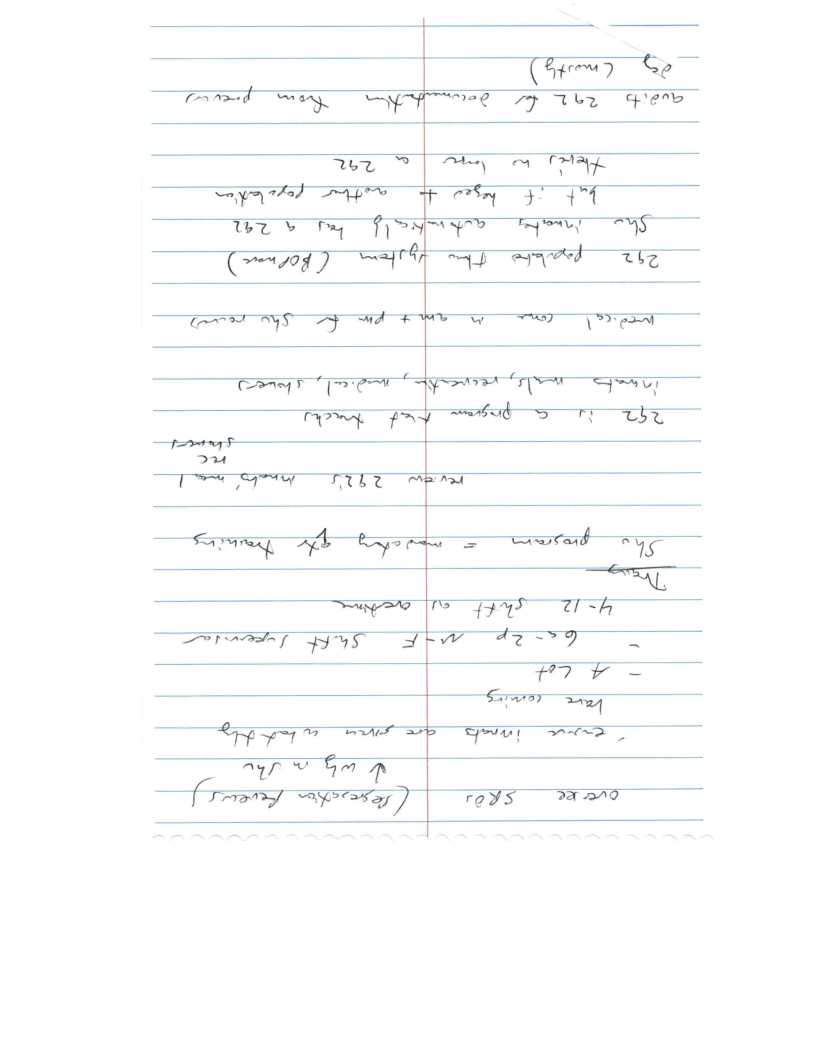 oversee SROs (Segregation Reviews)
↓ why in Shu
ensure inmates are given what they
have coming
- A Lot
- 6a-2p M-F Shift Supervisor
4-12 shift as overtime
Shu program = mandatory qtr training
review 292's inmates' meal
rec
showers
292 is a program that tracks
inmate meals, recreation, medical, showers
medical come in am + pm for Shu rounds
292 populate thru system (BOPware)
Shu inmates automatically has a 292
but if keyed to another population
there's no longer a 292
audits 292 for documentation from previous
day (mostly)